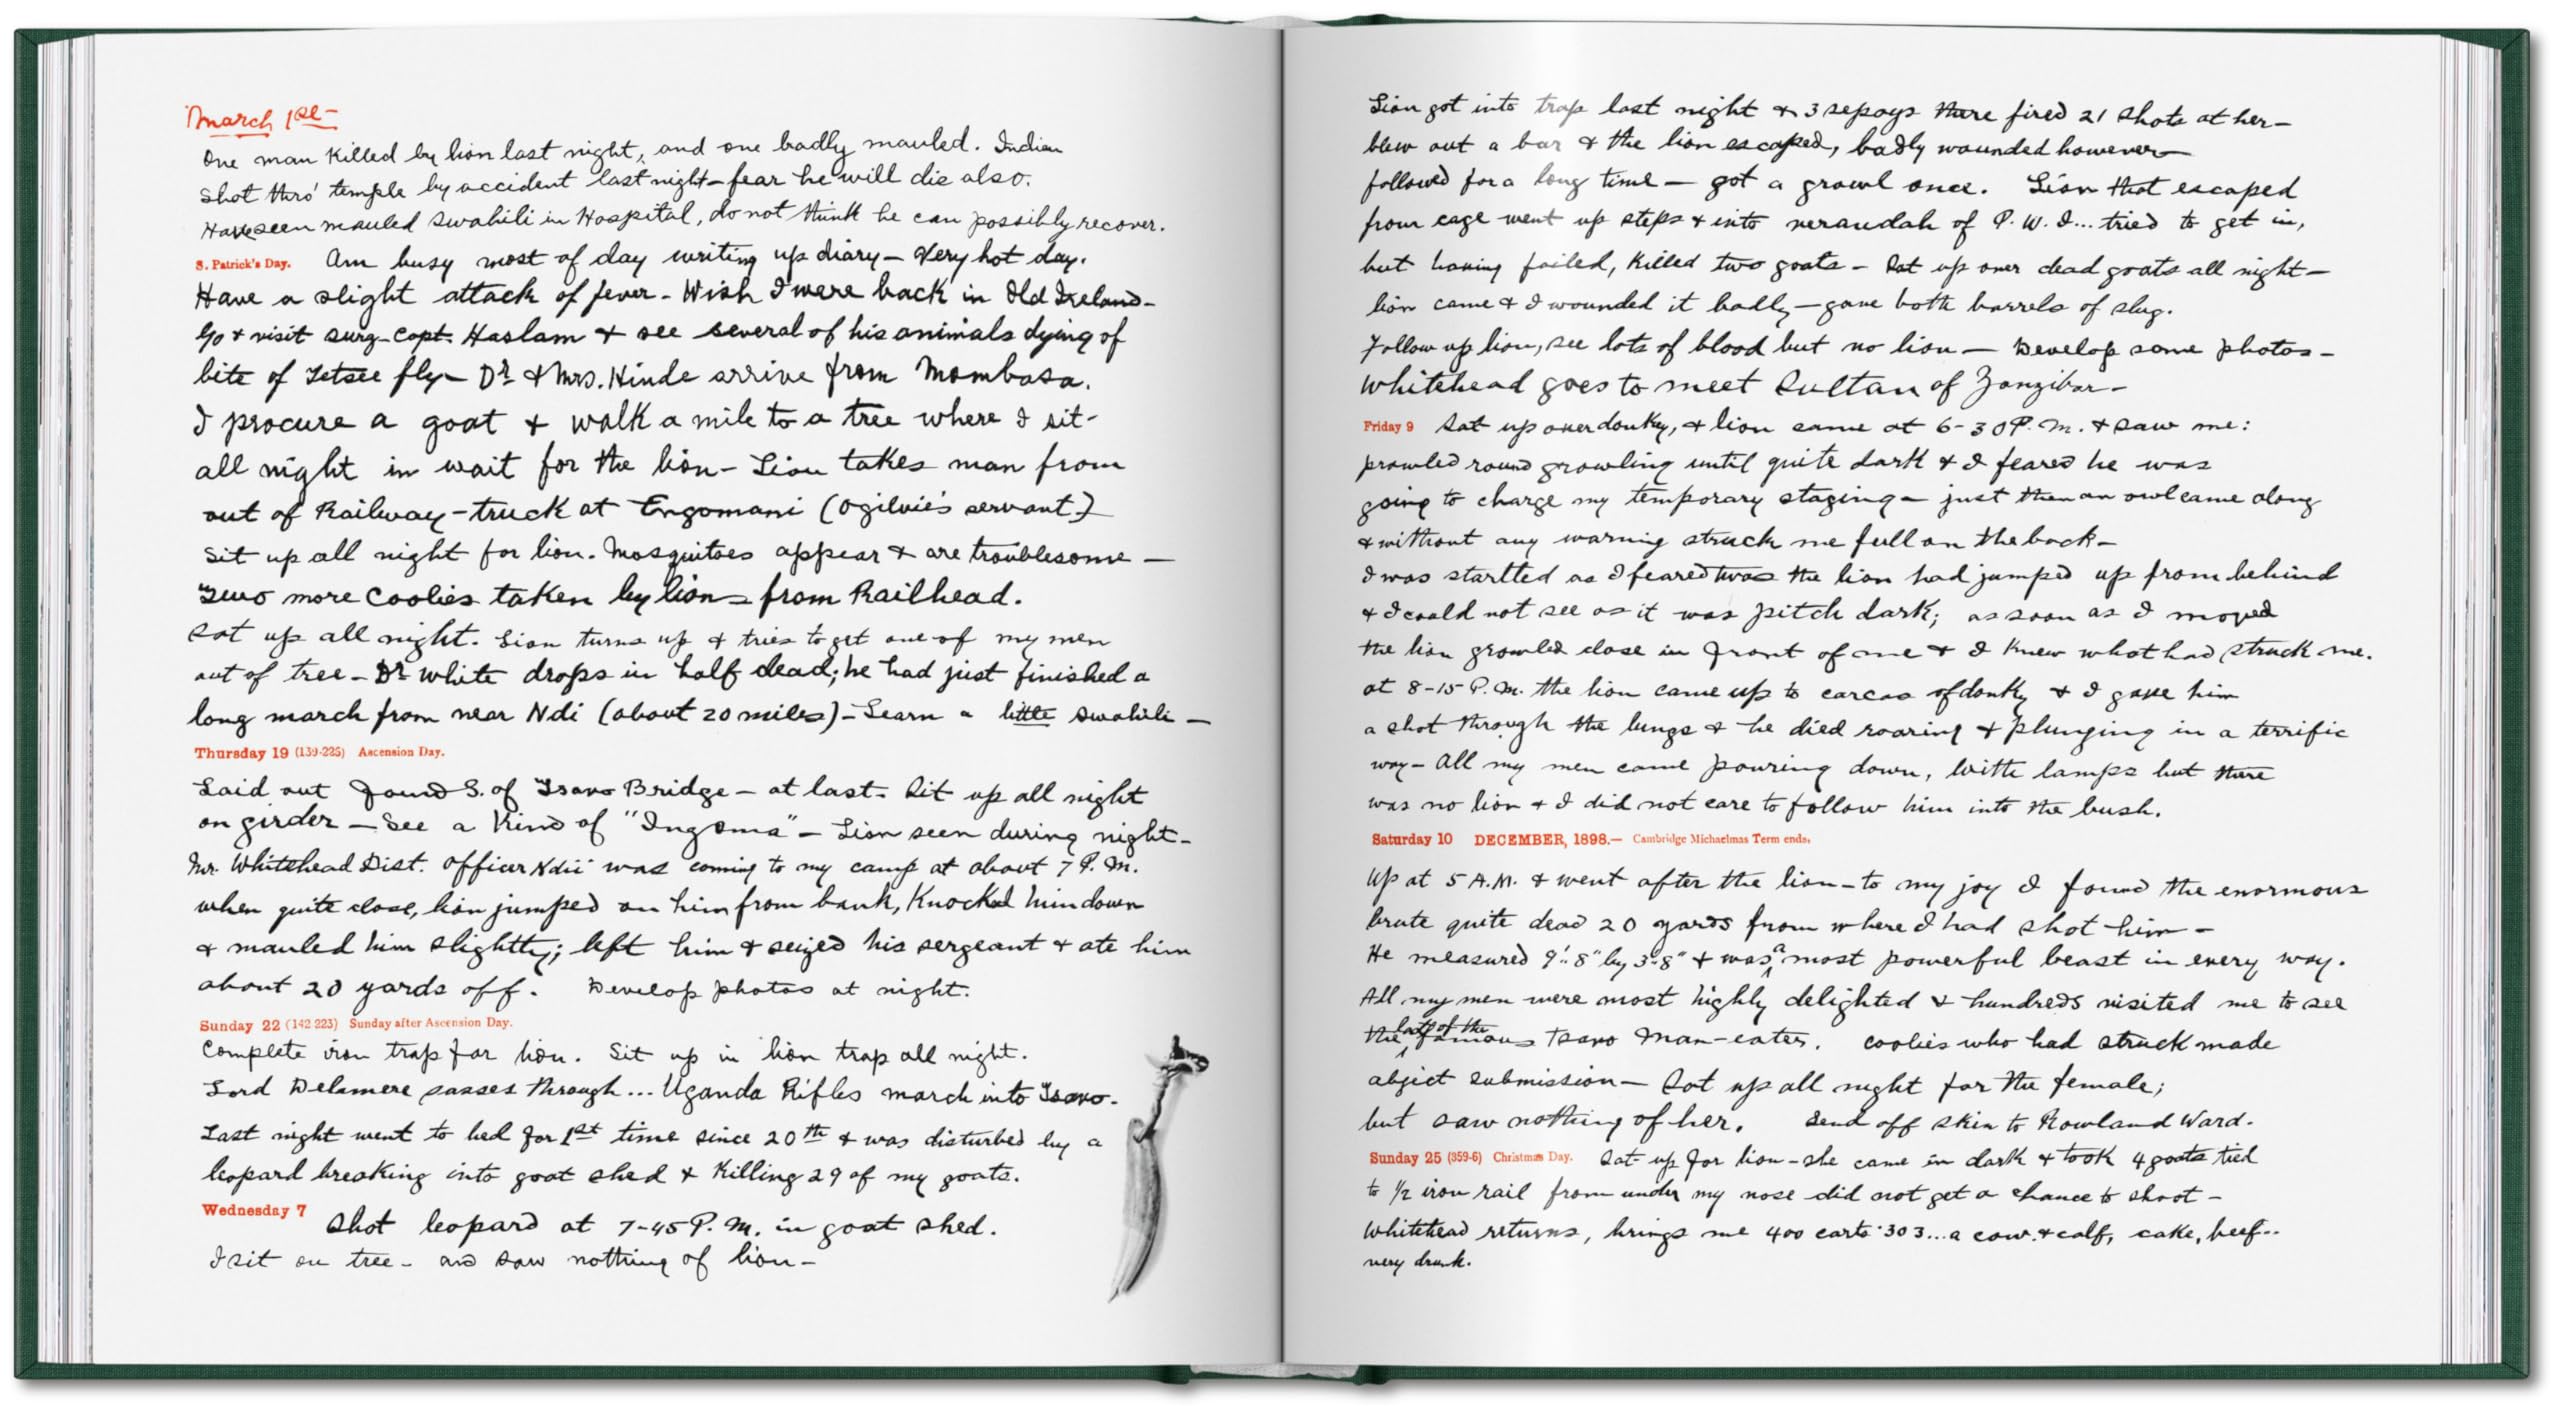 March 1st
One man killed by lion last night, and one badly mauled. Indian
shot thro' temple by accident last night – fear he will die also.
Have seen mauled Swahili in Hospital, do not think he can possibly recover.
S. Patrick's Day. Am busy most of day writing up diary – Very hot day.
Have a slight attack of fever – Wish I were back in Old Ireland –
Go & visit Surg-Capt. Haslam & see several of his animals dying of
bite of Tetsee fly – Dr & Mrs. Hinde arrive from Mombasa.
I procure a goat & walk a mile to a tree where I sit –
all night in wait for the lion – Lion takes man from
out of Railway-truck at Engomani (Ogilvie's servant)
Sit up all night for lion. Mosquitoes appear & are troublesome –
Two more Coolies taken by lion – from Railhead.
Sat up all night. Lion turns up & tries to get one of my men
out of tree – Dr White drops in half dead; he had just finished a
long march from near Ndi (about 20 miles) – Learn a little Swahili –
Thursday 19 (139-226) Ascension Day.
Laid out found S. of Tsavo Bridge – at last. Sit up all night
on girder – See a kind of "Ingoma" – Lion seen during night –
Mr. Whitehead Dist. Officer Ndii was coming to my camp at about 7 P.M.
when quite close, lion jumped on him from bank, knocked him down
& mauled him slightly; left him & seized his sergeant & ate him
about 20 yards off. Develop photos at night.
Sunday 22 (142 223) Sunday after Ascension Day.
Complete iron trap for lion. Sit up in lion trap all night.
Lord Delamere passes through... Uganda Rifles march into Tsavo.
Last night went to bed for 1st time since 20th & was disturbed by a
leopard breaking into goat shed & killing 29 of my goats.
Wednesday 7 Shot leopard at 7-45 P.M. in goat shed.
I sit on tree – and saw nothing of lion –
Lion got into trap last night & 3 sepoys there fired 21 shots at her –
blew out a bar & the lion escaped, badly wounded however –
followed for a long time – got a growl once. Lion that escaped
from cage went up steps & into verandah of P. W. I... tried to get in,
but having failed, killed two goats – Sat up over dead goats all night –
lion came & I wounded it badly – gave both barrels of slug.
Follow up lion, see lots of blood but no lion – Develop some photos –
Whitehead goes to meet Sultan of Zanzibar –
Friday 9 Sat up over donkey, & lion came at 6-30 P.M. & saw me:
prowled round growling until quite dark & I feared he was
going to charge my temporary staging – just then an owl came along
& without any warning struck me full on the back –
I was startled as I feared twas the lion had jumped up from behind
& I could not see as it was pitch dark; as soon as I moved
the lion growled close in front of me & I knew what had struck me.
at 8-15 P.M. the lion came up to carcas of donky & I gave him
a shot through the lungs & he died roaring & plunging in a terrific
way – All my men came pouring down, with lamps but there
was no lion & I did not care to follow him into the bush.
Saturday 10 DECEMBER, 1898.— Cambridge Michaelmas Term ends.
Up at 5 A.M. & went after the lion – to my joy I found the enormous
brute quite dead 20 yards from where I had shot him –
He measured 9'. 8" by 3'. 8" & was a most powerful beast in every way.
All my men were most highly delighted & hundreds visited me to see
the last of the famous Tsavo Man-eater. Coolies who had struck made
abject submission – Sat up all night for the female;
but saw nothing of her. Send off skin to Rowland Ward.
Sunday 25 (359-6) Christmas Day. Sat up for lion – she came in dark & took 4 goats tied
to 1/2 iron rail from under my nose did not get a chance to shoot –
Whitehead returns, brings me 400 carts .303... a cow & calf, cake, beef..
very drunk.